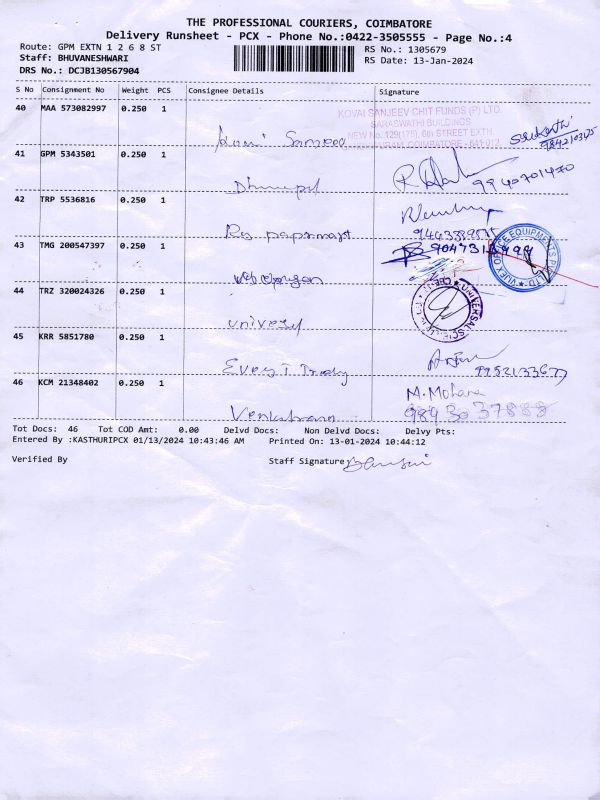 THE PROFESSIONAL COURIERS, COIMBATORE
Delivery Runsheet - PCX - Phone No.:0422-3505555 - Page No.:4
Route: GPM EXTN 1 2 6 8 ST
RS No.: 1305679
Staff: BHUVANESHWARI
RS Date: 13-Jan-2024
DRS No.: DCJB130567904
S No Consignment No Weight PCS Consignee Details Signature
40 MAA 573082997 0.250 1
KOVAI SANJEEV CHIT FUNDS (P) LTD.
SARASWATHI BUILDINGS
NEW No. 129(175), 6th STREET EXTN.
COIMBATORE - 641 012
Srikanth
9842103475
41 GPM 5343501 0.250 1
9940701470
42 TRP 5536816 0.250 1
43 TMG 200547397 0.250 1
VIJEX OFFICE EQUIPMENTS PVT. LTD
44 TRZ 320024326 0.250 1
UNIVERSAL SCIENTIFIC
45 KRR 5851780 0.250 1
9952133677
46 KCM 21348402 0.250 1
M. Mohana
98430 37888
Tot Docs: 46 Tot COD Amt: 0.00 Delvd Docs: Non Delvd Docs: Delvy Pts:
Entered By :KASTHURIPCX 01/13/2024 10:43:46 AM Printed On: 13-01-2024 10:44:12
Verified By Staff Signature